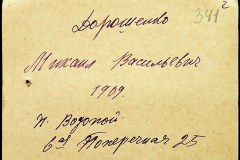 341
2
Дорошенко
Михаил Васильевич
1909
п. Водопой
6ая Поперечная 25